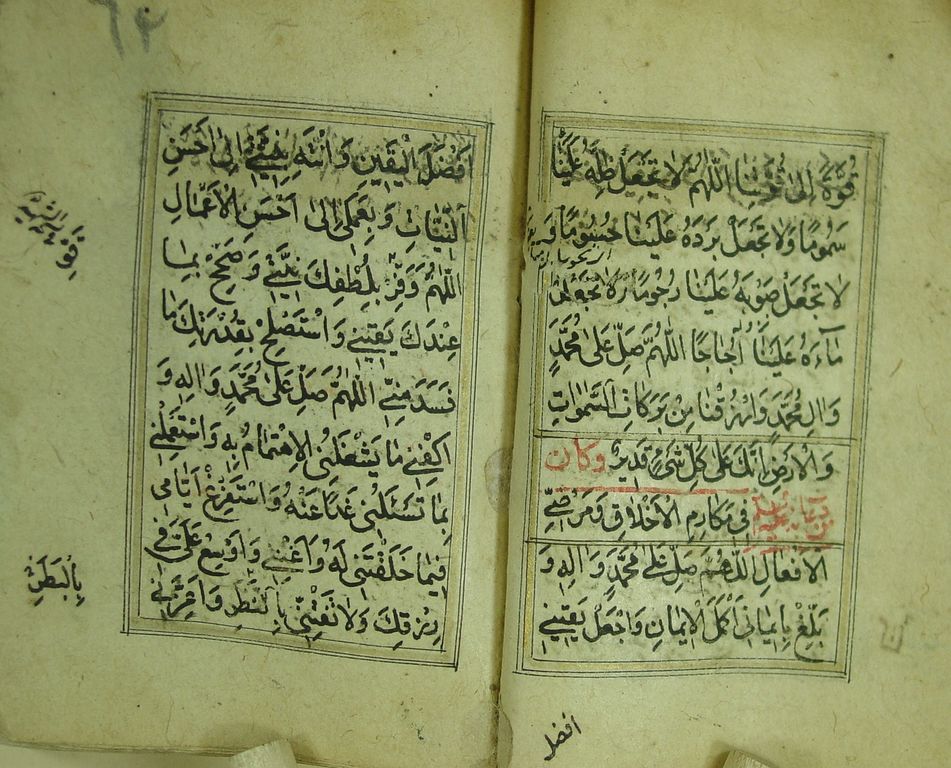 قُوَّةً إِلىٰ قُوَّتِنَا اللّٰهُمَّ لَا تَجْعَلْ ظِلَّهُ عَلَيْنَا
سَمُومًا وَلَا تَجْعَلْ بَرْدَهُ عَلَيْنَا حُسُومًا وَ
لَا تَجْعَلْ صَوْبَهُ عَلَيْنَا رُجُومًا وَلَا تَجْعَلْ
مَاءَهُ عَلَيْنَا أُجَاجًا اللّٰهُمَّ صَلِّ عَلىٰ مُحَمَّدٍ
وَالِ مُحَمَّدٍ وَارْزُقْنَا مِنْ بَرَكَاتِ السَّمٰوَاتِ
وَالْاَرْضِ اِنَّكَ عَلىٰ كُلِّ شَيْءٍ قَدِيرٌ وَكَانَ
مِنْ دُعَائِهِ فِي مَكَارِمِ الْاَخْلَاقِ وَمَرْضِيِّ
الْاَفْعَالِ اللّٰهُمَّ صَلِّ عَلىٰ مُحَمَّدٍ وَالِهِ وَ
بَلِّغْ بِاِيمَانِي اَكْمَلَ الْاِيمَانِ وَاجْعَلْ يَقِينِي
افضل
٦٤
اَفْضَلَ الْيَقِينِ وَانْتَهِ بِنِيَّتِي اِلىٰ اَحْسَنِ
النِّيَّاتِ وَبِعَمَلِي اِلىٰ اَحْسَنِ الْاَعْمَالِ
اللّٰهُمَّ وَفِّرْ بِلُطْفِكَ نِيَّتِي وَصَحِّحْ بِمَا
عِنْدَكَ يَقِينِي وَاسْتَصْلِحْ بِقُدْرَتِكَ مَا
فَسَدَ مِنِّي اللّٰهُمَّ صَلِّ عَلىٰ مُحَمَّدٍ وَالِهِ وَ
اكْفِنِي مَا يَشْغَلُنِي الْاِهْتِمَامُ بِهِ وَاسْتَعْمِلْنِي
بِمَا تَسْئَلُنِي غَدًا عَنْهُ وَاسْتَفْرِغْ اَيَّامِي
فِيمَا خَلَقْتَنِي لَهُ وَاَغْنِنِي وَاَوْسِعْ عَلَيَّ فِي
رِزْقِكَ وَلَا تَفْتِنِّي بِالنَّظَرِ وَاَعِزَّنِي
بِالْبَطَرِ